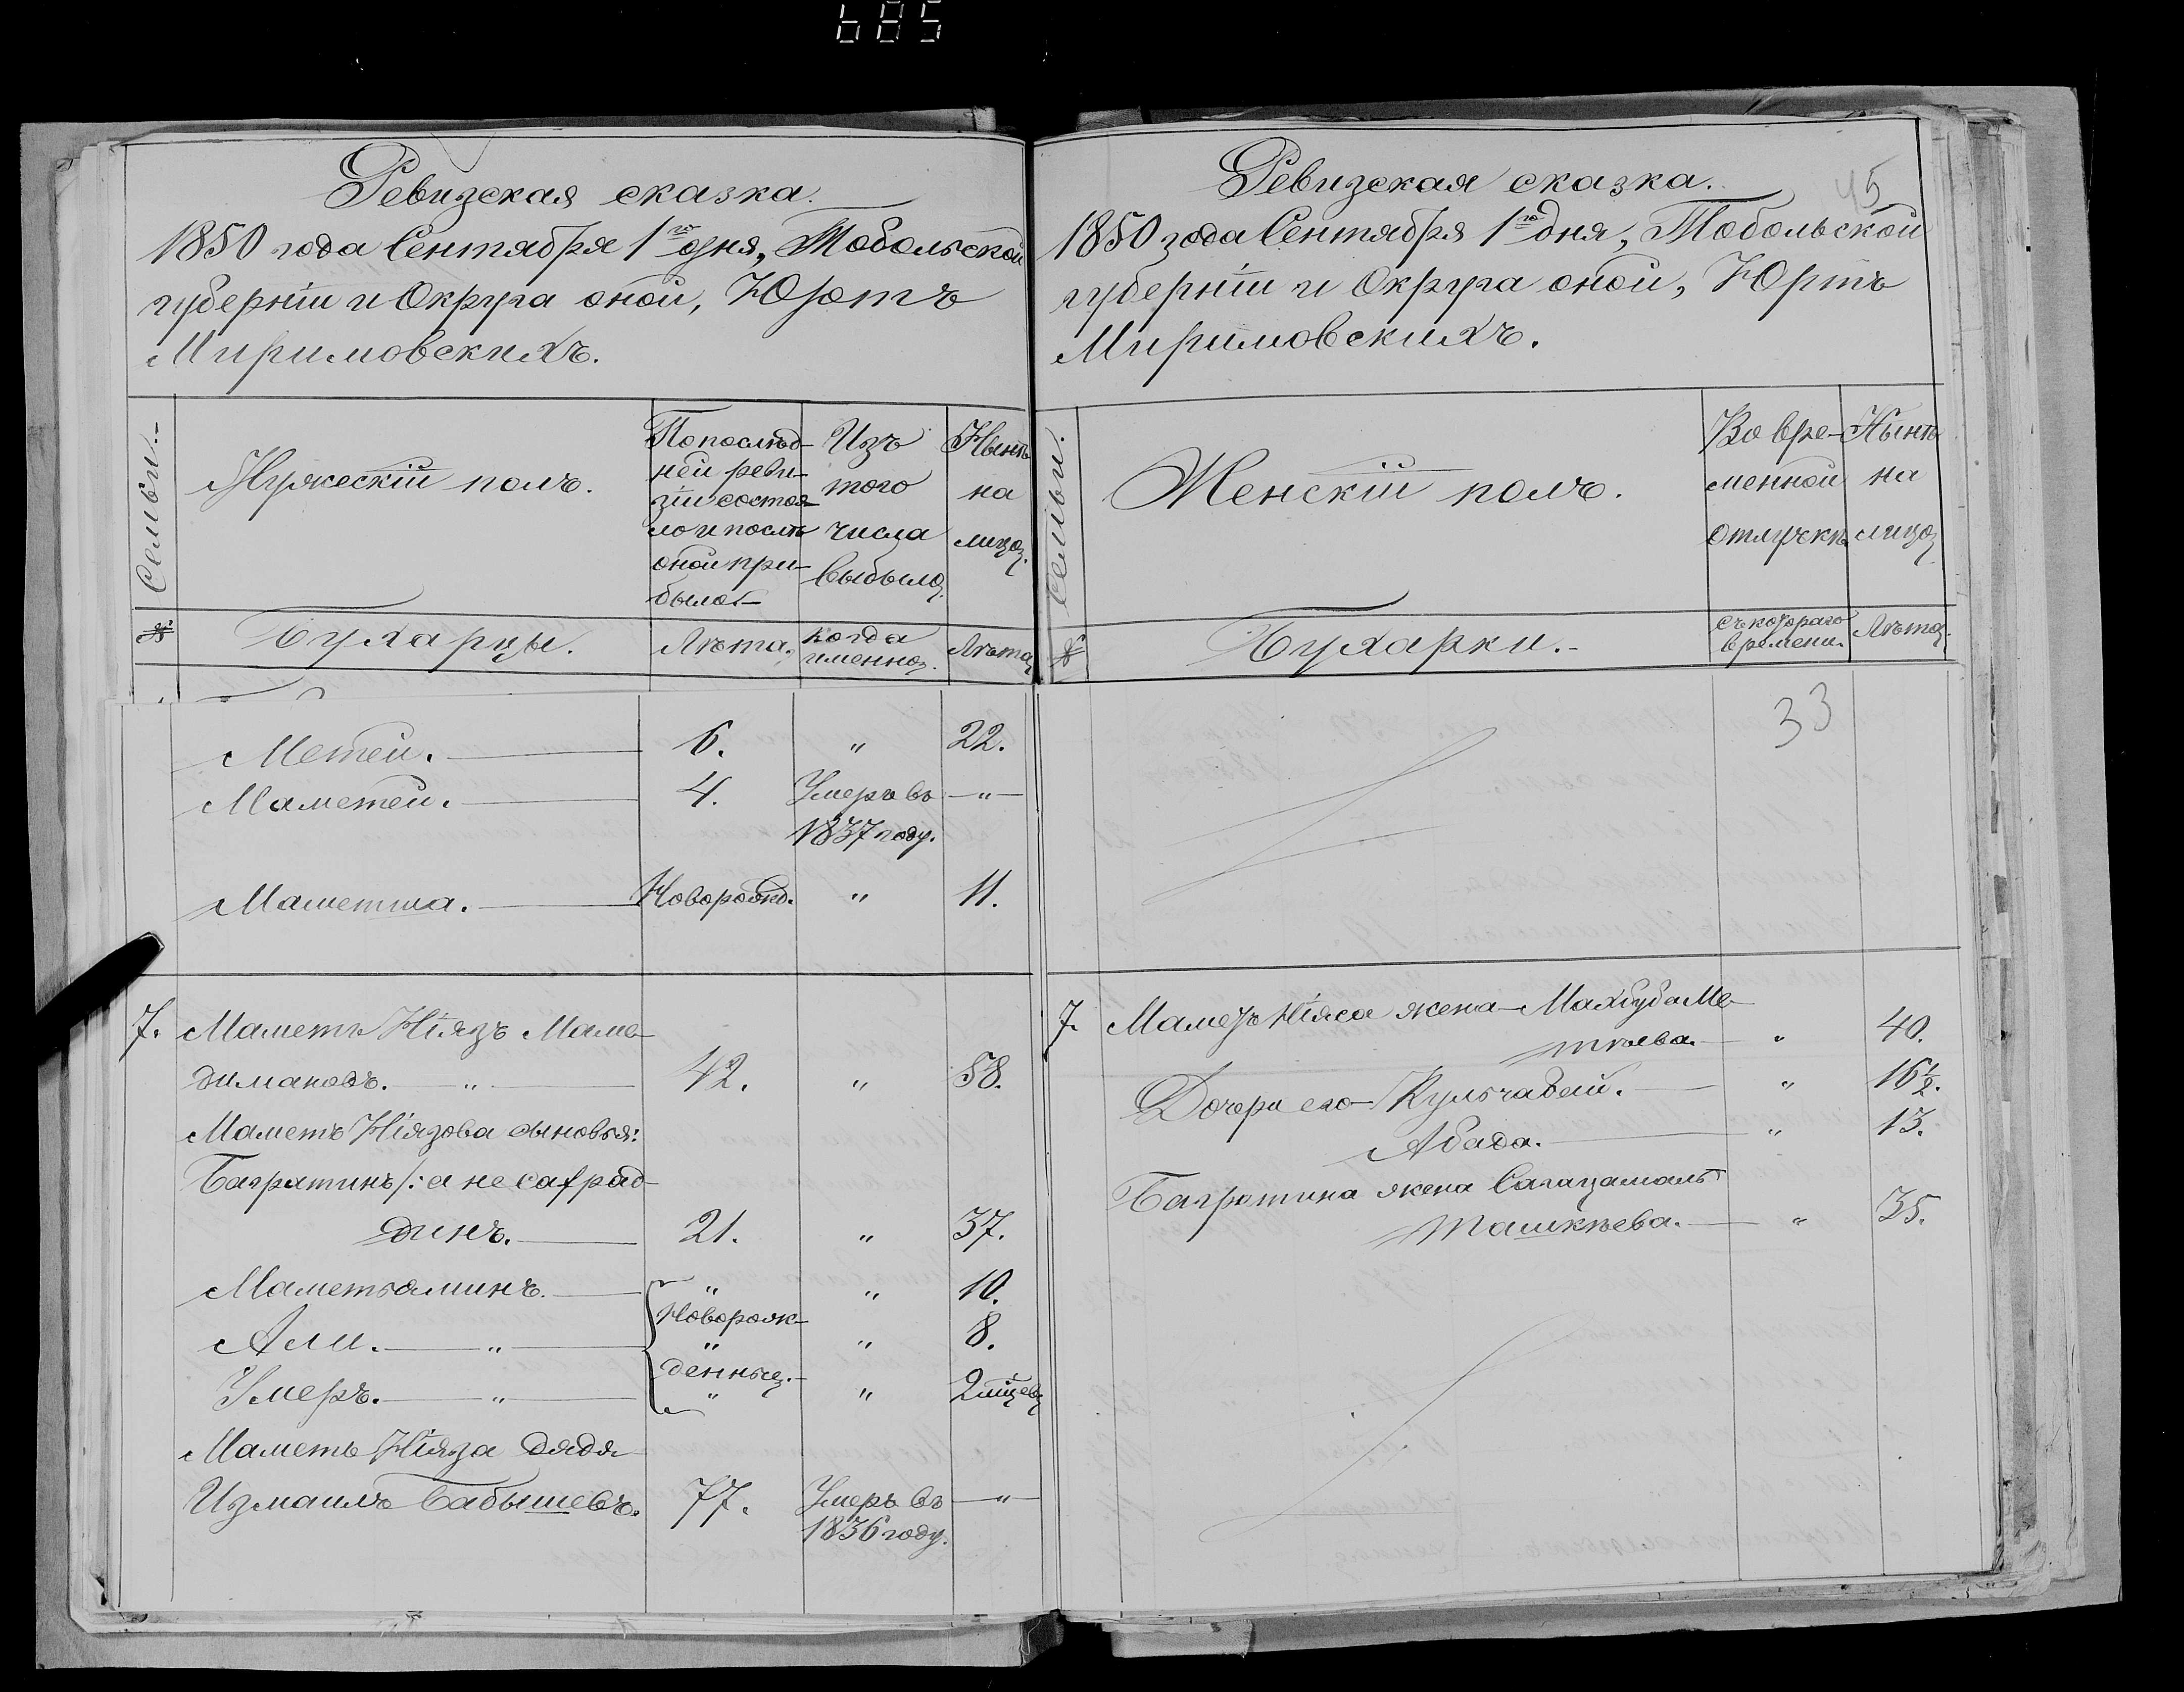 685
Ревизская сказка.
1850 года Сентября 1го дня, Тобольской
губерніи и Округа оной, Юртъ
Миримовскихъ.
Семьи.
Мужескій полъ.
По послѣд-
ней реви-
зіи состоя-
ло и послѣ
оной при-
было.
Изъ
того
числа
выбыло.
Нынѣ
на
лицо.
№
Бухарцы.
Лѣта.
когда
именно.
Лѣта.
Метей. 6. " 22.
Маметей. 4. Умеръ въ —"—
1837 году.
Маметша. Новорожд. " 11.
7. Маметъ Ніязъ Маме-
димановъ. — " — 42. " 58.
Маметъ Ніязова сыновья:
Багратинъ /: а не Саѳрад-
динъ. 21. " 37.
Маметьаминъ. " " 10.
Новорож-
Али. — " — " " 8.
денные.
Умеръ. — " — " " 2 мѣс.
Маметъ Ніяза дядя
Измаилъ Бабышевъ. 77. Умеръ въ —"—
1836 году.
45
Ревизская сказка.
1850 года Сентября 1го дня, Тобольской
губерніи и Округа оной, Юртъ
Миримовскихъ.
Семьи.
Женскій полъ.
Во вре-
менной
отлучкѣ
Нынѣ
на
лицо.
№
Бухарки.
съ котораго
времени.
Лѣта.
33
7. Маметъ Ніяса жена Махбуба Ме-
тѣева. " 40.
Дочери его Кульчабей. " 16½.
Абада. " 13.
Багратина жена Сагацамалъ
Ташкѣева. " 35.